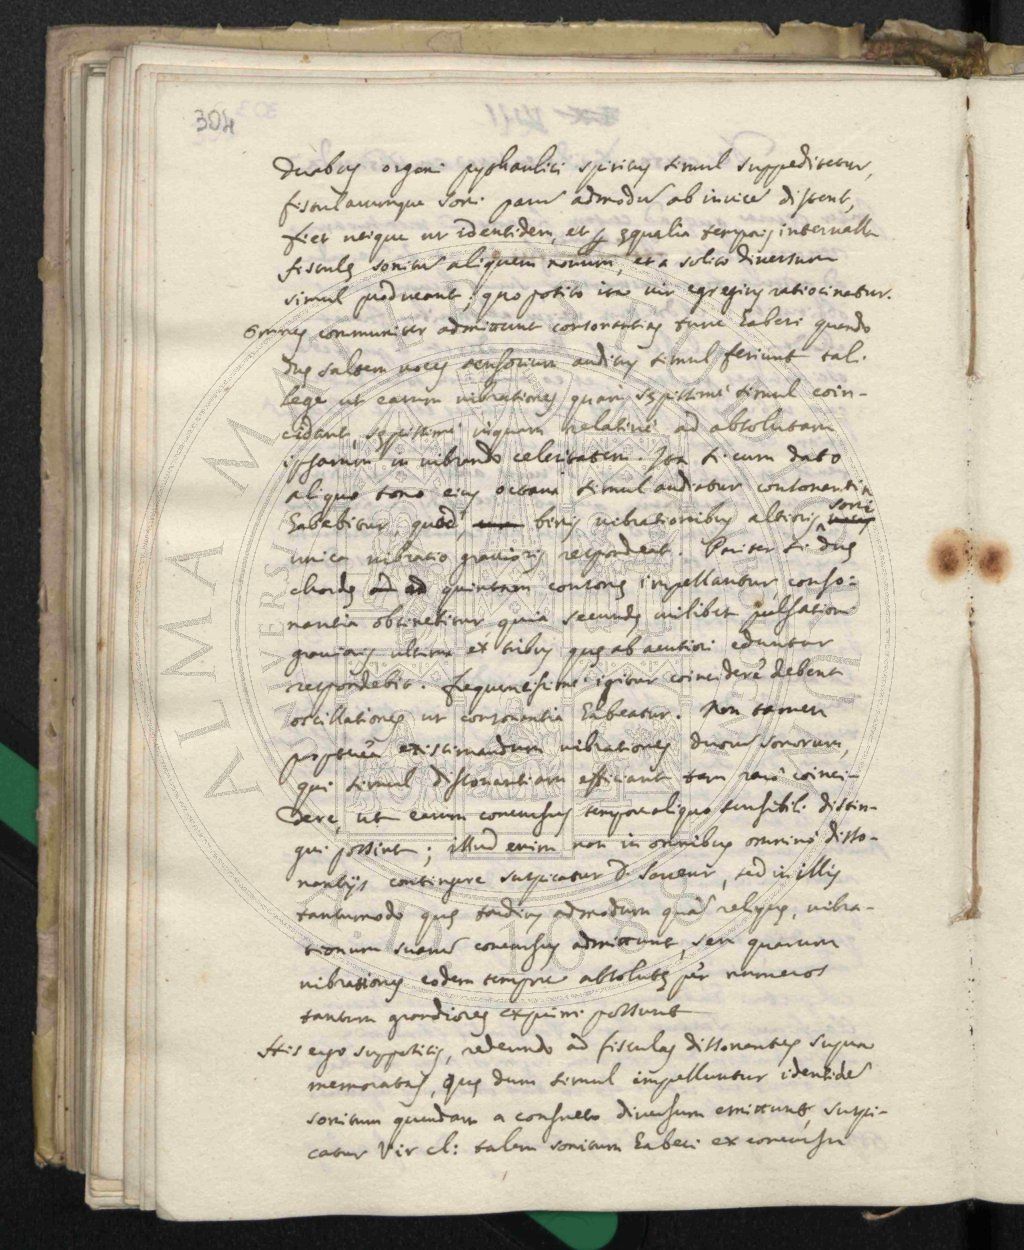 304
Duabus organi pysaulici spiritus simul suppeditetur,
fistularumque soni parum admodum ab invicem distent,
fiet utique ut identidem, et per ęqualia temporis intervalla
fistulę sonitum aliquem novum, et a solito diversum
simul producant; quo posito ita vir egregius ratiocinatur.
Omnes communiter admittunt consonantias tunc haberi quando
duę saltem voces sensorium auditus simul feriunt tali
lege ut earum vibrationes quam sępissimè simul coin-
cidant, sępissimè inquam relativè ad absolutam
ipsarum in vibrando celeritatem. Ita si cum dato
aliquo tono eius octava simul audiatur consonantia
habebitur, quod binis vibrationibus altioris soni
unica vibratio gravioris respondeat. Pariter si duę
chordę ad quintam consonę impellantur, conso-
nantia obtinebitur quia secundę cuilibet pulsationi
gravioris ultima ex tribus quę ab acutiori eduntur
respondebit. Frequentissimè igitur coincidere debent
oscillationes ut consonantia habeatur. Non tamen
propterea existimandum vibrationes duorum sonorum,
qui simul dissonantiam efficiant tam rarò coinci-
dere, ut earum concursus tempore aliquo sensibili distin-
gui possint; illud enim non in omnibus omninò disso-
nantijs contingere suspicatur D. Saveur, sed in illis
tantummodo quę tardius admodum quam reliquę, vibra-
tionum suarum concursus admittunt, seu quarum
vibrationes eodem tempore absolutę per numeros
tantum grandiores exprimi possunt
His ergo suppositis, redeundo ad fistulas dissonantes supra
memoratas, quę dum simul impelluntur identidem
sonitum quendam a consueto diversum emittunt, suspi-
catur Vir cl: talem sonitum haberi ex concursu
ALMA MATER STUDIORUM
UNIVERSITÀ DI BOLOGNA
A.D. 1088